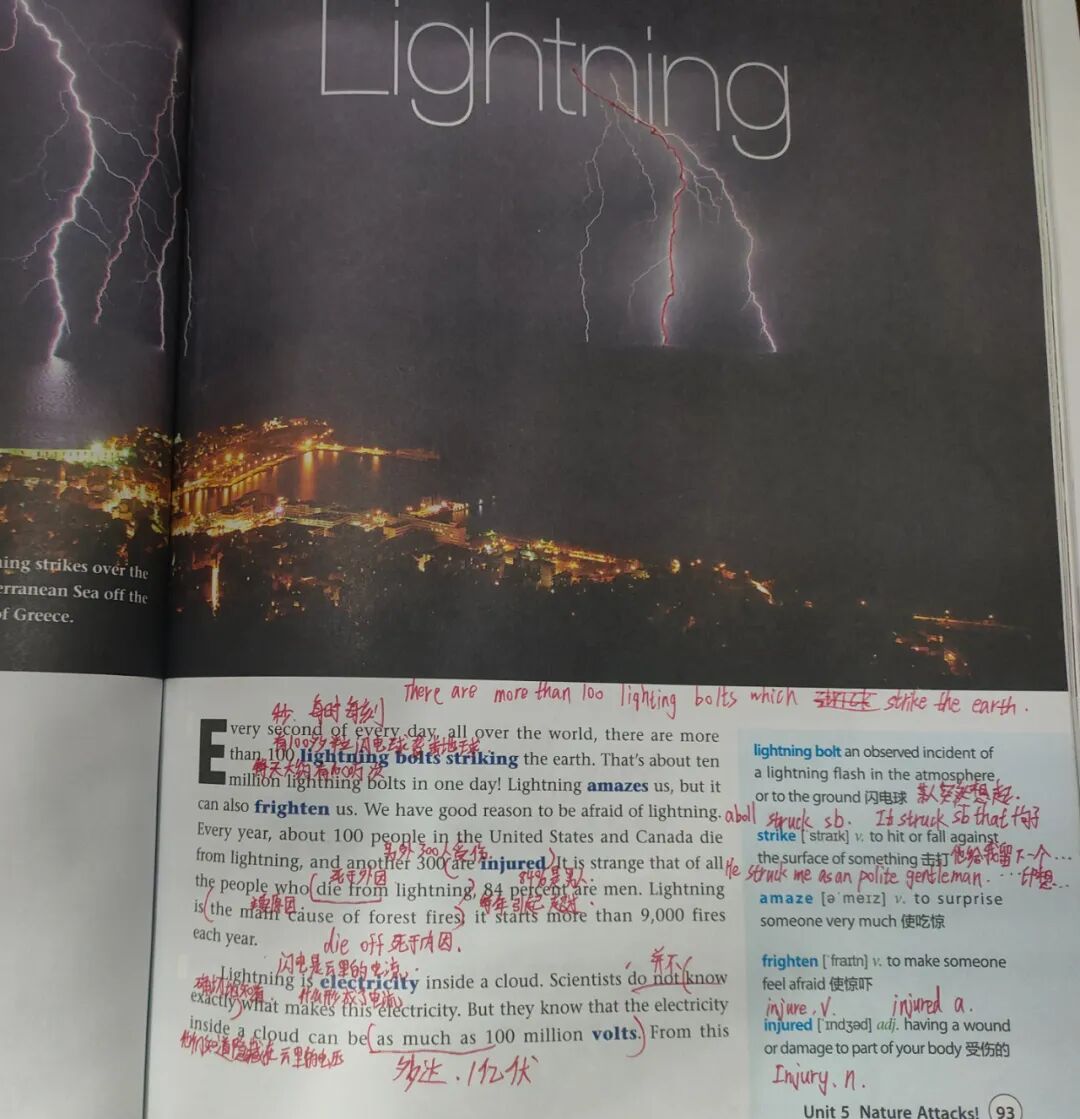 Lightning
ning strikes over the
erranean Sea off the
of Greece.
There are more than 100 lighting bolts which strike the earth.
秒、每时每刻
Every second of every day, all over the world, there are more
有100多粒闪电球袭击地球.
than 100 lightning bolts striking the earth. That's about ten
每天大约有1000万次
million lightning bolts in one day! Lightning amazes us, but it
can also frighten us. We have good reason to be afraid of lightning.
Every year, about 100 people in the United States and Canada die
另外300人受伤
from lightning, and another 300 are injured. It is strange that of all
死于外因 84%是男人.
the people who die from lightning, 84 percent are men. Lightning
主要原因 每年引起 超过.
is the main cause of forest fires; it starts more than 9,000 fires
each year.
die off 死于内因.
闪电是云里的电流,
并不
Lightning is electricity inside a cloud. Scientists do not know
什么形成了电流,
exactly what makes this electricity. But they know that the electricity
inside a cloud can be as much as 100 million volts. From this
多达.1亿伏
lightning bolt an observed incident of
a lightning flash in the atmosphere
or to the ground 闪电球
某人突然想起.
struck sb. It struck sb that 句子
strike [ˈstraɪk] v. to hit or fall against
the surface of something 击打
他给我留下一个…
He struck me as an polite gentleman. …印想…
amaze [əˈmeɪz] v. to surprise
someone very much 使吃惊
frighten [ˈfraɪtn] v. to make someone
feel afraid 使惊吓
injure, v. injured a.
injured [ˈɪndʒəd] adj. having a wound
or damage to part of your body 受伤的
Injury. n.
Unit 5 Nature Attacks! 93